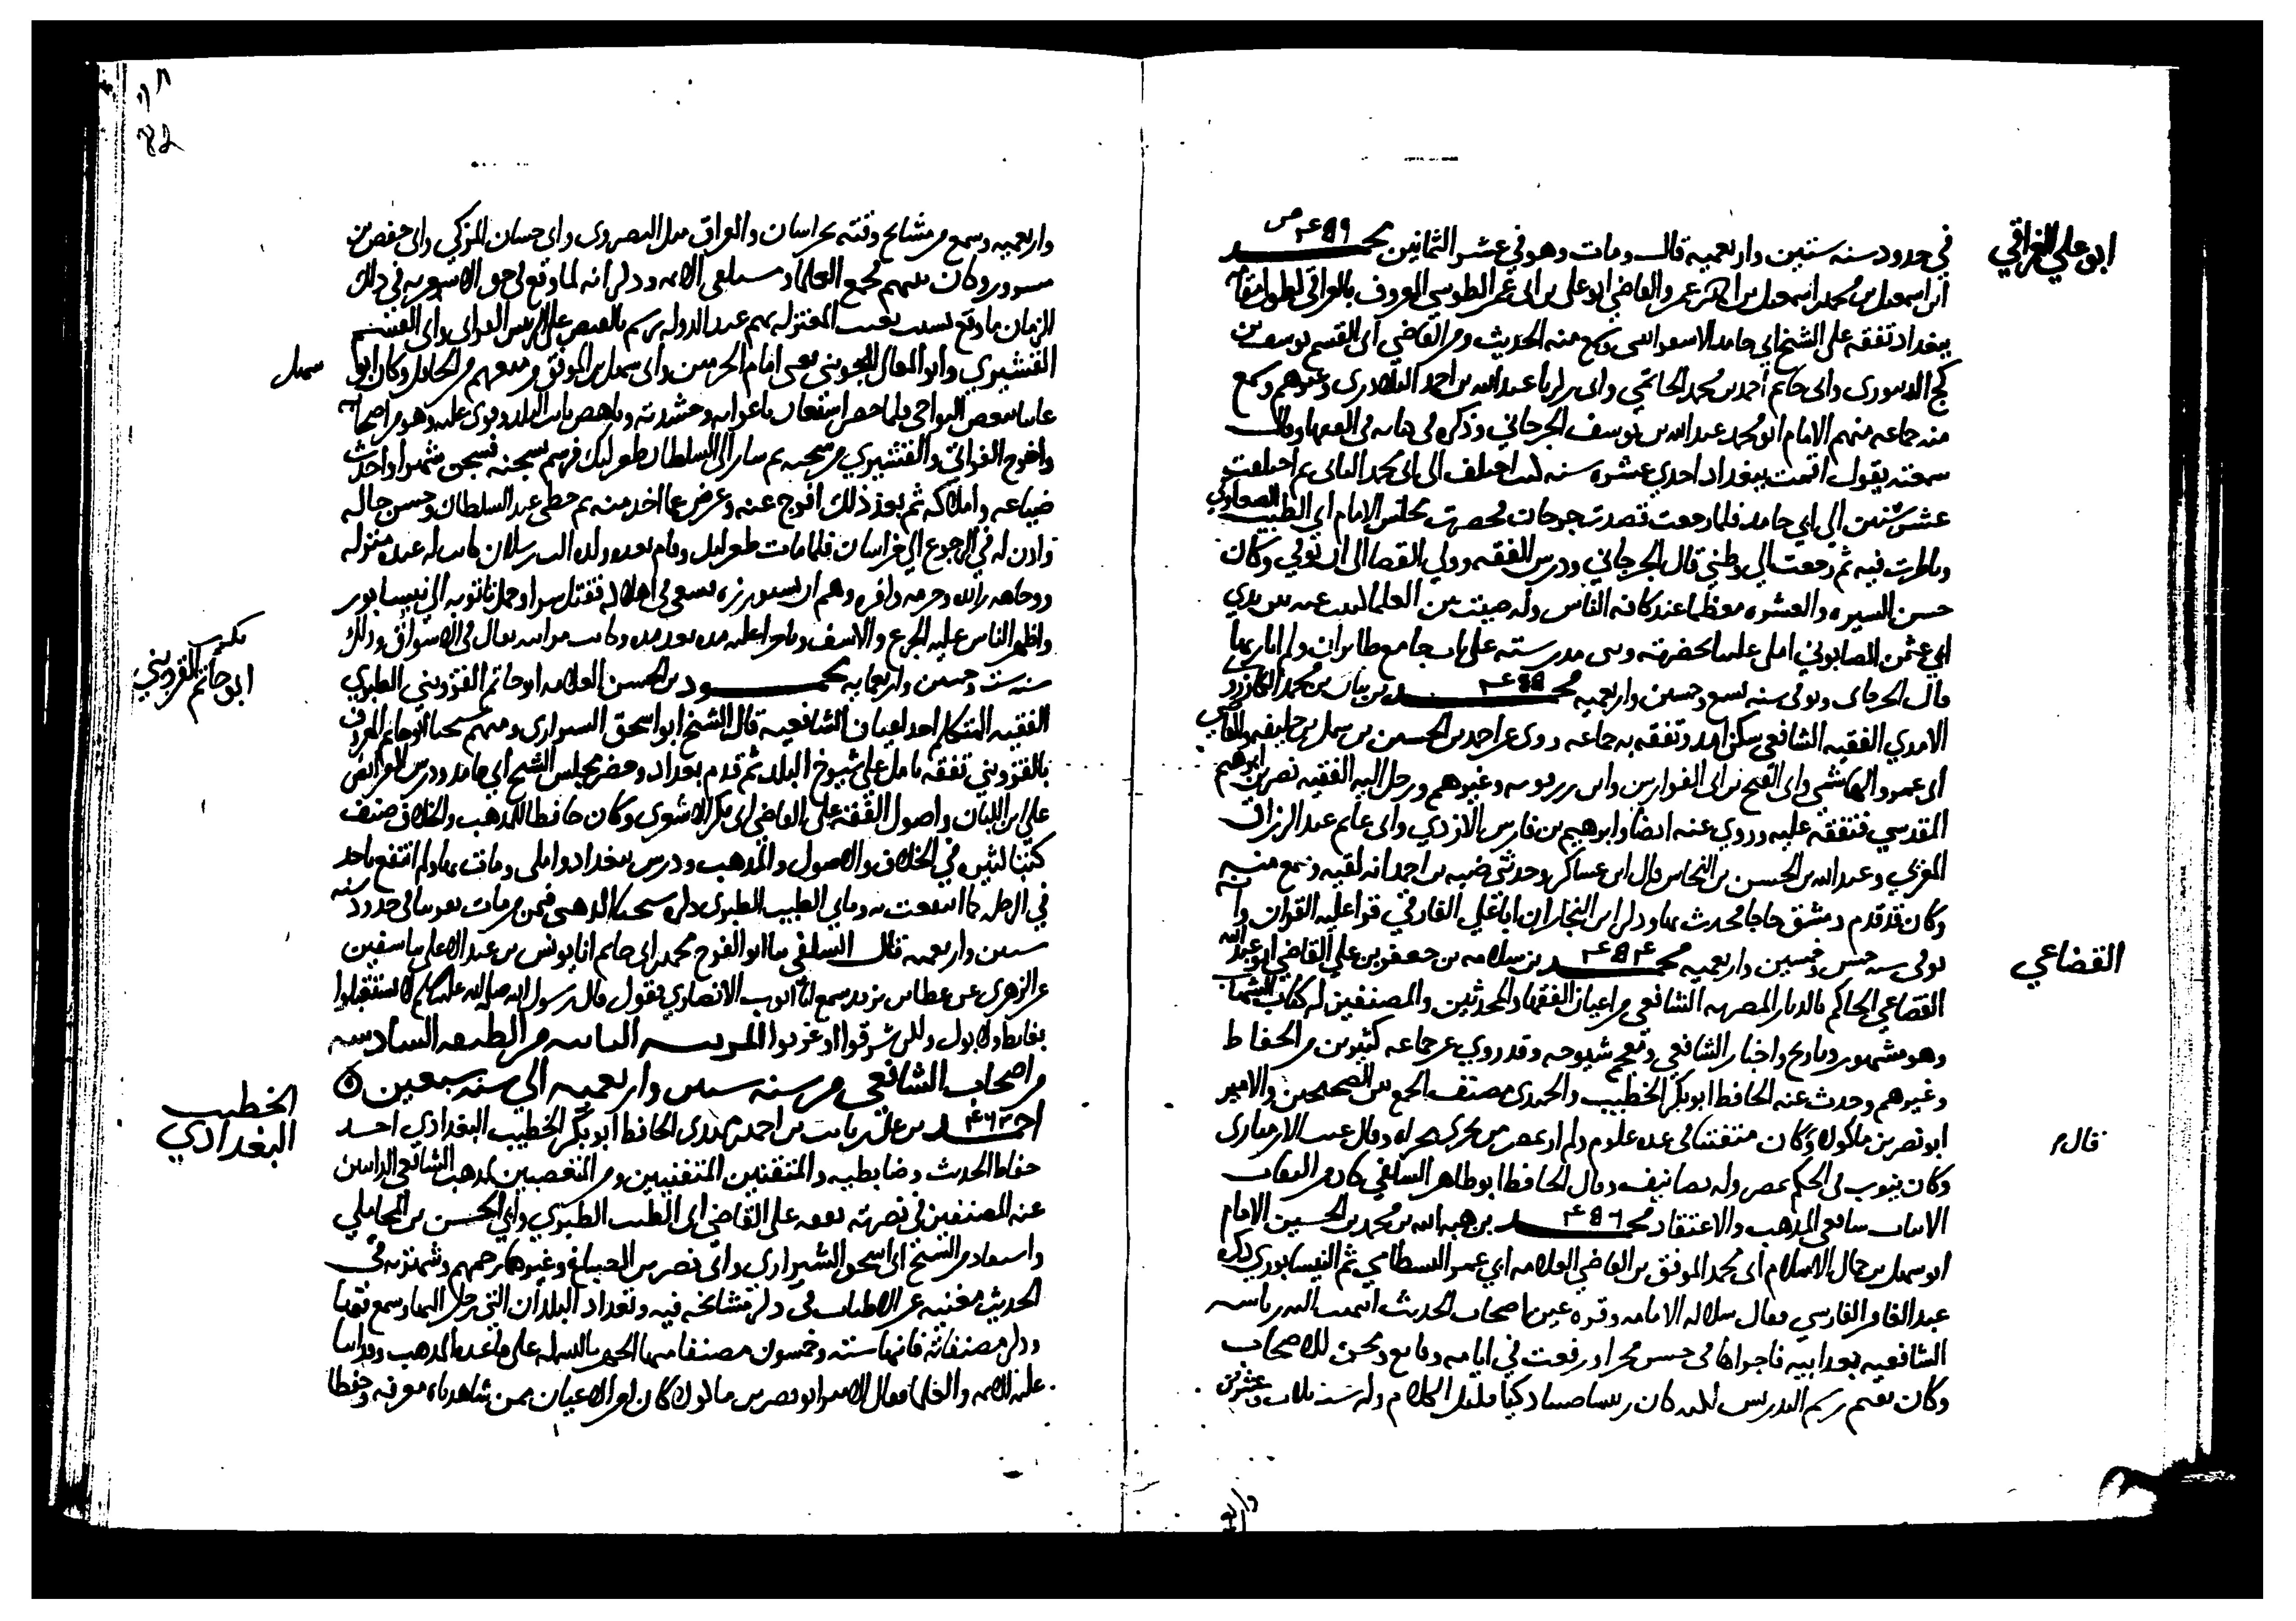 ابو علي العراقي
في حدود سنه ستين واربعميه قال ومات وهو في عشر الثمانين محمد
ابن اسمعيل بن محمد اسمعيل بن عمر والقاضي ابو علي بن ابي عمر الطوسي المعروف بالعراقي لطول اقامته
ببغداد تفقه على الشيخ ابي حامد الاسفراىىى وسمع منه الحديث ومن القاضي ابى القسم يوسف بن
كج الدىىورى وابى حاتم احمد بن محمد الحاتمي وابى زكريا عبدالله بن احمد البلاذرى وغيرهم وسمع
منه جماعه منهم الامام ابو محمد عبدالله بن يوسف الجرجاني وذكره فى كتابه فى الفقها وقال
سمعته يقول اقمت ببغداد احدي عشره سنه كنت اختلف الى ابى محمد البافى ثم اختلفت
عشر سنين الي ابي حامد فلما رجعت قصدت جرجان فحضرت مجلس الامام ابي الطيب الصعلوكي
وناظرت فيه ثم رجعت الي وطني قال الجرجاني ودرس الفقه وولي القضا الى ان توفي وكان
حسن السيره والعشره معظما عند كافه الناس وله صيت من العلما كتبت عنه بين يدي
ابي عثمن الصابوني املى علينا بحضرته وبنى مدرسته على باب جامع طابران ولم اثار بها
قال الجرجانى وتوفى سنه تسع وخمسين واربعميه محمد بن بيان بن محمد الكازروني
الامدي الفقيه الشافعي سكن امد وتفقه به جماعه روى عن احمد بن الحسين بن سهل بن خليفه والقاضي
ابى عمر والهاشمي وابى الفتح بن ابى الفوارس وابن رزقويه وغيرهم ورحل اليه الفقيه نصر بن ابرهيم
المقدسي فتفقه عليه وروي عنه ايضا وابرهيم بن فارس الازدي وابى غانم عبد الرزاق
المعري وعبدالله بن الحسن بن النحاس قال ابن عساكر وحدثني ضبه بن احمد انه لقيه وسمع منه
وكان قد قدم دمشق حاجا فحدث بها وذكر ابن النجار ان ابا علي الفارقي قرا عليه القران وانه
توفى سنه خمس وخمسين واربعميه محمد بن سلامه بن جعفر بن علي القاضي ابو عبدالله
القضاعي
القضاعي الحاكم بالديار المصريه الشافعي من اعيان الفقها والمحدثين والمصنفين له كتاب الشهاب
وهو مشهور وتاريخ واخبار الشافعي ومعجم شيوخه وقد روي عن جماعه كثيرين من الحفاظ
وغيرهم وحدث عنه الحافظ ابو بكر الخطيب والحميدى مصنف الجمع بين الصحيحين والامير
ابو نصر بن ماكولا وكان متفننا فى عده علوم ولم ار بمصر من يجرى مجراه وقال غيث الارمنازى
قال
وكان ينوب فى الحكم بمصر وله تصانيف وقال الحافظ ابو طاهر السلفي كان من الثقات
الاثبات شافعى المذهب والاعتقاد محمد بن هبه الله بن محمد بن الحسين الامام
ابو سهل بن جمال الاسلام ابى محمد الموفق بن القاضي العلامه ابي عمر البسطامي ثم النيسابوري ذكره
عبد الغافر الفارسي فقال سلاله الامامه وقره عين اصحاب الحديث انتهت اليه رياسه
الشافعيه بعد ابيه فاجراها فى حسن مجرا ورفعت في ايامه وقايع ومحن للاصحاب
وكان يقيم رسم التدريس لكنه كان رييسا صينا ذكيا قليل الكلام ولد سنه ثلاث وعشرين
واربعميه وسمع من مشايخ وقته بخراسان والعراق مثل النصروى وابى حسان المزكي وابى حفص بن
مسرور وكان بيتهم مجمع العلما وملتقى الايمه وذكر انه لما وقع فى حق الاشعريه فى ذلك
الزمان ما وقع بسبب تعصب المعتزله بهم عميد الدوله رسم بالقبض على الرييس الفراتى وابى القسم
القشيري وابو المعالى الجوينى يعنى امام الحرمين وابى سهل بن الموفق ومنعهم من المحافل وكان ابو سهل
غايبا ببعض النواحى
واخرج الفراتي والقشيري من سجنه ثم سار الى السلطان طغرلبك فرسم بسجنه فسجن شهرا واخذت
ضياعه واملاكه ثم بعد ذلك افرج عنه وعوض عما اخذ منه ثم حظى عند السلطان وحسن حاله
واذن له في الرجوع الي خراسان فلما مات طغرلبك وقام بعده ولده الب ارسلان كانت له عنده منزله
ووجاهه زايده وحرمه وافره وهم ان يستوزره فسعى فى اهلاكه فقتل سرا وحمل تابوته الي نيسابور
واظهر الناس عليه الجزع والاسف وناحوا عليه مده بعد مده وكانت مراثيه تقال فى الاسواق وذلك
سنه ست وخمسين واربعمايه محمود بن الحسن العلامه ابو حاتم القزويني الطبري
ابو حاتم القزويني
الفقيه المتكلم احد اعيان الشافعيه قال الشيخ ابو اسحق الشيرازى ومنهم شيخنا ابو حاتم المعروف
بالقزويني تفقه بامل علي شيوخ البلد ثم قدم بغداد وحضر مجلس الشيخ ابي حامد ودرس الفرايض
علي ابن اللبان واصول الفقه على القاضي ابى بكر الاشعرى وكان حافظا للمذهب والخلاف صنف
كتبا كثيره في الخلاف والاصول والمذهب ودرس ببغداد واملى ومات بها ولم انتفع باحد
في الرحله كما انتفعت به وبابي الطيب الطبرى ذكره شيخنا الذهبى فيمن مات تقريبا فى حدود سنه
ستين واربعميه قال السلفي ثنا ابو الفرج محمد بن ابى حاتم انا يونس بن عبد الاعلى ثنا سفين
عن الزهرى عن عطا بن يزيد سمع ابا ايوب الانصاري يقول قال رسول الله صلى الله عليه وسلم لا تستقبلوا
بغايط ولا بول ولكن شرقوا او غربوا المرتبه الثانيه من الطبقه السادسه
من اصحاب الشافعي من سنه ستين واربعميه الي سنه سبعين
احمد بن علي بن ثابت بن احمد بن مهدى الحافظ ابو بكر الخطيب البغدادي احد
الخطيب
البغدادي
حفاظ الحديث وضابطيه والمتقنين المتفننين ومن المتعصبين لمذهب الشافعي الذابين
عنه المصنفين فى نصرته تفقه على القاضي ابى الطيب الطبري وابي الحسن بن المحاملي
واستفاد من الشيخ ابى اسحق الشيرازى وابى نصر بن الصباغ وغيرهما رحمهم وشهرته فى
الحديث مغنيه عن الاطناب فى ذكر مشايخه فيه وتعداد البلدان التي رحل اليها وسمع فيها
وذكر مصنفاته فانها سته وخمسون مصنفا منها الجهر بالبسمله على قاعده المذهب وقد اثنا
عليه الايمه والعلما فقال الامير ابو نصر بن ماكولا كان اخر الاعيان ممن شاهدناه معرفه وحفظا